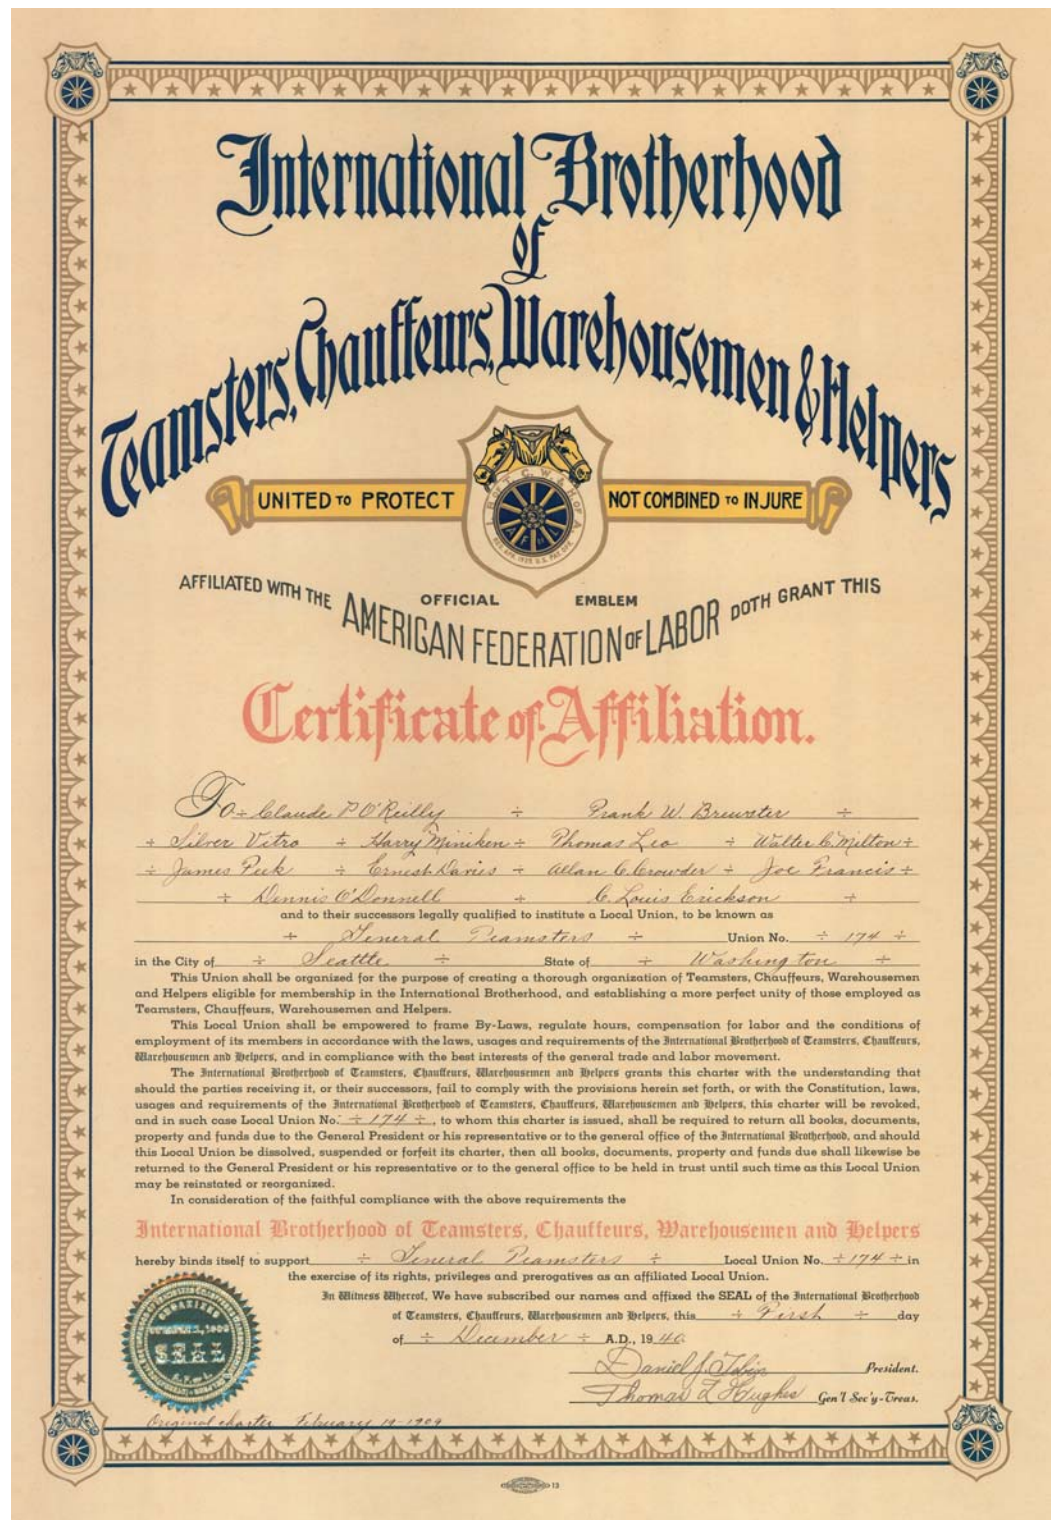 International Brotherhood
of
Teamsters, Chauffeurs, Warehousemen & Helpers
UNITED TO PROTECT
NOT COMBINED TO INJURE
I. B. OF T. C. W. & H. OF A.
A F of L
REG. APR. 1939 U.S. PAT. OFF.
OFFICIAL EMBLEM
AFFILIATED WITH THE AMERICAN FEDERATION OF LABOR DOTH GRANT THIS
Certificate of Affiliation.
To ÷ Claude P O'Reilly ÷ Frank W. Brewster ÷
÷ Silver Vitro ÷ Harry Miniken ÷ Thomas Leo ÷ Walter C. Milton ÷
÷ James Peek ÷ Ernest Davies ÷ Allan C. Crowder ÷ Joe Francis ÷
÷ Dennis O'Donnell ÷ C. Louis Erickson ÷
and to their successors legally qualified to institute a Local Union, to be known as
÷ General Teamsters ÷ Union No. ÷ 174 ÷
in the City of ÷ Seattle ÷ State of ÷ Washington ÷
This Union shall be organized for the purpose of creating a thorough organization of Teamsters, Chauffeurs, Warehousemen
and Helpers eligible for membership in the International Brotherhood, and establishing a more perfect unity of those employed as
Teamsters, Chauffeurs, Warehousemen and Helpers.
This Local Union shall be empowered to frame By-Laws, regulate hours, compensation for labor and the conditions of
employment of its members in accordance with the laws, usages and requirements of the International Brotherhood of Teamsters, Chauffeurs,
Warehousemen and Helpers, and in compliance with the best interests of the general trade and labor movement.
The International Brotherhood of Teamsters, Chauffeurs, Warehousemen and Helpers grants this charter with the understanding that
should the parties receiving it, or their successors, fail to comply with the provisions herein set forth, or with the Constitution, laws,
usages and requirements of the International Brotherhood of Teamsters, Chauffeurs, Warehousemen and Helpers, this charter will be revoked,
and in such case Local Union No. ÷ 174 ÷, to whom this charter is issued, shall be required to return all books, documents,
property and funds due to the General President or his representative or to the general office of the International Brotherhood, and should
this Local Union be dissolved, suspended or forfeit its charter, then all books, documents, property and funds due shall likewise be
returned to the General President or his representative or to the general office to be held in trust until such time as this Local Union
may be reinstated or reorganized.
In consideration of the faithful compliance with the above requirements the
International Brotherhood of Teamsters, Chauffeurs, Warehousemen and Helpers
hereby binds itself to support ÷ General Teamsters ÷ Local Union No. ÷ 174 ÷ in
the exercise of its rights, privileges and prerogatives as an affiliated Local Union.
In Witness Whereof, We have subscribed our names and affixed the SEAL of the International Brotherhood
of Teamsters, Chauffeurs, Warehousemen and Helpers, this ÷ First ÷ day
of ÷ December ÷ A.D., 19 40.
Daniel J. Tobin President.
Thomas L Hughes Gen'l Sec'y-Treas.
ORGANIZED
SEAL
Original charter February 19-1909
13